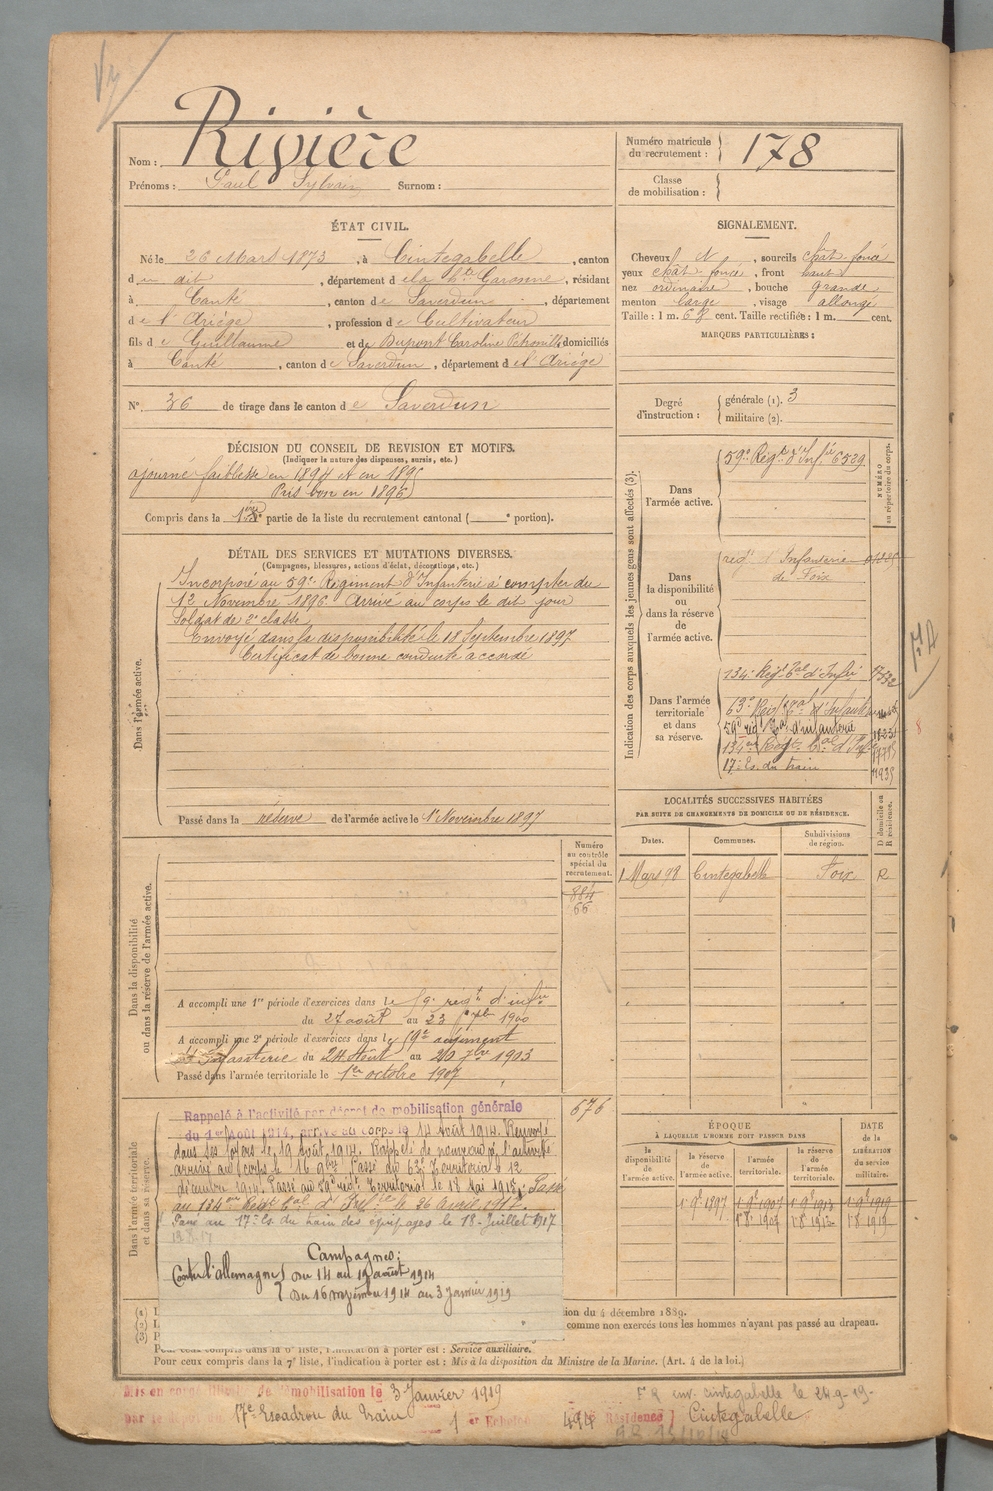 Nom : Rivière
Prénoms : Paul Sylvain Surnom :
Numéro matricule du recrutement : 178
Classe de mobilisation :
ÉTAT CIVIL.
Né le 26 Mars 1873, à Cintegabelle, canton
du dit, département de la Hte Garonne, résidant
à Canté, canton de Saverdun, département
de l'Ariège, profession de Cultivateur
fils de Guillaume et de Dupont Caroline Pétronille domiciliés
à Canté, canton de Saverdun, département de l'Ariège
N° 36 de tirage dans le canton de Saverdun
SIGNALEMENT.
Cheveux N, sourcils chat. foncé
yeux chat. foncé, front haut
nez ordinaire, bouche grande
menton large, visage allongé
Taille : 1 m. 68 cent. Taille rectifiée : 1 m. cent.
MARQUES PARTICULIÈRES :
Degré d'instruction : générale (1). 3
militaire (2).
DÉCISION DU CONSEIL DE REVISION ET MOTIFS.
(Indiquer la nature des dispenses, sursis, etc.)
ajourné faiblesse en 1894 et en 1895
Pris bon en 1896
Compris dans la 1ère partie de la liste du recrutement cantonal ( e portion).
DÉTAIL DES SERVICES ET MUTATIONS DIVERSES.
(Campagnes, blessures, actions d'éclat, décorations, etc.)
Dans l'armée active.
Incorporé au 59e Régiment d'Infanterie à compter du
12 Novembre 1896 Arrivé au corps le dit jour
Soldat de 2e classe
Envoyé dans la disponibilité le 18 Septembre 1897
Certificat de bonne conduite accordé
Passé dans la réserve de l'armée active le 1er Novembre 1897
Indication des corps auxquels les jeunes gens sont affectés (3).
NUMÉRO au répertoire du corps.
Dans l'armée active.
59e Régt d'Infie 6539
Dans la disponibilité ou dans la réserve de l'armée active.
régt d'Infanterie
de Foix
Dans l'armée territoriale et dans sa réserve.
134e Régt Tal d'Infie
63e Régt Tal d'Infanterie
59e régt Tal d'infanterie
134e Régt Tal d'Infie
17e Es. du train
LOCALITÉS SUCCESSIVES HABITÉES
PAR SUITE DE CHANGEMENTS DE DOMICILE OU DE RÉSIDENCE.
Dates. Communes. Subdivisions de région. D domicile ou R résidence.
1 Mars 98 Cintegabelle Foix R
Dans la disponibilité ou dans la réserve de l'armée active.
Numéro au contrôle spécial du recrutement.
884
66
A accompli une 1re période d'exercices dans le 59e régt d'infie
du 27 août au 23 7bre 1900
A accompli une 2e période d'exercices dans le 59e régiment
d'Infanterie du 24 Août au 20 7bre 1903
Passé dans l'armée territoriale le 1er octobre 1907
Dans l'armée territoriale et dans sa réserve.
676
Rappelé à l'activité par décret de mobilisation générale
du 1er Août 1914, arrivé au corps le 14 Août 1914. Renvoyé
dans ses foyers le 19 août 1914. Rappelé de nouveau à l'activité
arrivé au corps le 16 9bre. Passé du 63e Territorial le 12
décembre 1914. Passé au 59e régt Territorial le 18 Mai 1915. Passé
au 134e Régt Tal d'Infie le 26 Avril 1917.
Passé au 17e Es. du train des équipages le 18 Juillet 1917
Campagnes :
Contre l'allemagne { Du 14 au 19 août 1914
Du 16 novembre 1914 au 3 Janvier 1919
ÉPOQUE
À LAQUELLE L'HOMME DOIT PASSER DANS
la disponibilité de l'armée active. la réserve de l'armée active. l'armée territoriale. la réserve de l'armée territoriale.
DATE de la LIBÉRATION du service militaire.
1 9e 1897 1 9e 1907 1 9e 1913 1 9e 1919
1 8 1907 1 8 1913 1 8 1919
ion du 4 décembre 1889.
comme non exercés tous les hommes n'ayant pas passé au drapeau.
Pour ceux compris dans la 6e liste, l'indication à porter est : Service auxiliaire.
Pour ceux compris dans la 7e liste, l'indication à porter est : Mis à la disposition du Ministre de la Marine. (Art. 4 de la loi.)
Mis en congé illimité de démobilisation le 3 Janvier 1919
par le dépôt du 17e Escadron du Train 1er Echelon N° 494 Résidence } Cintegabelle
F R env. cintegabelle le 24-9-19-